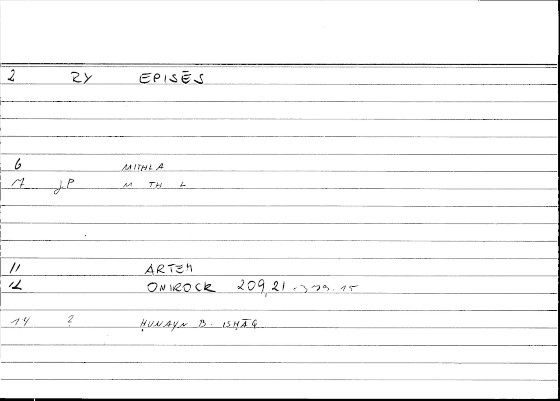 2 RY EPISĒS
6 MITHLA
17 JP M TH L
11 ARTEM
12 ONIROCR 209,21
14 ? ḤUNAYN B. ISḤĀQ